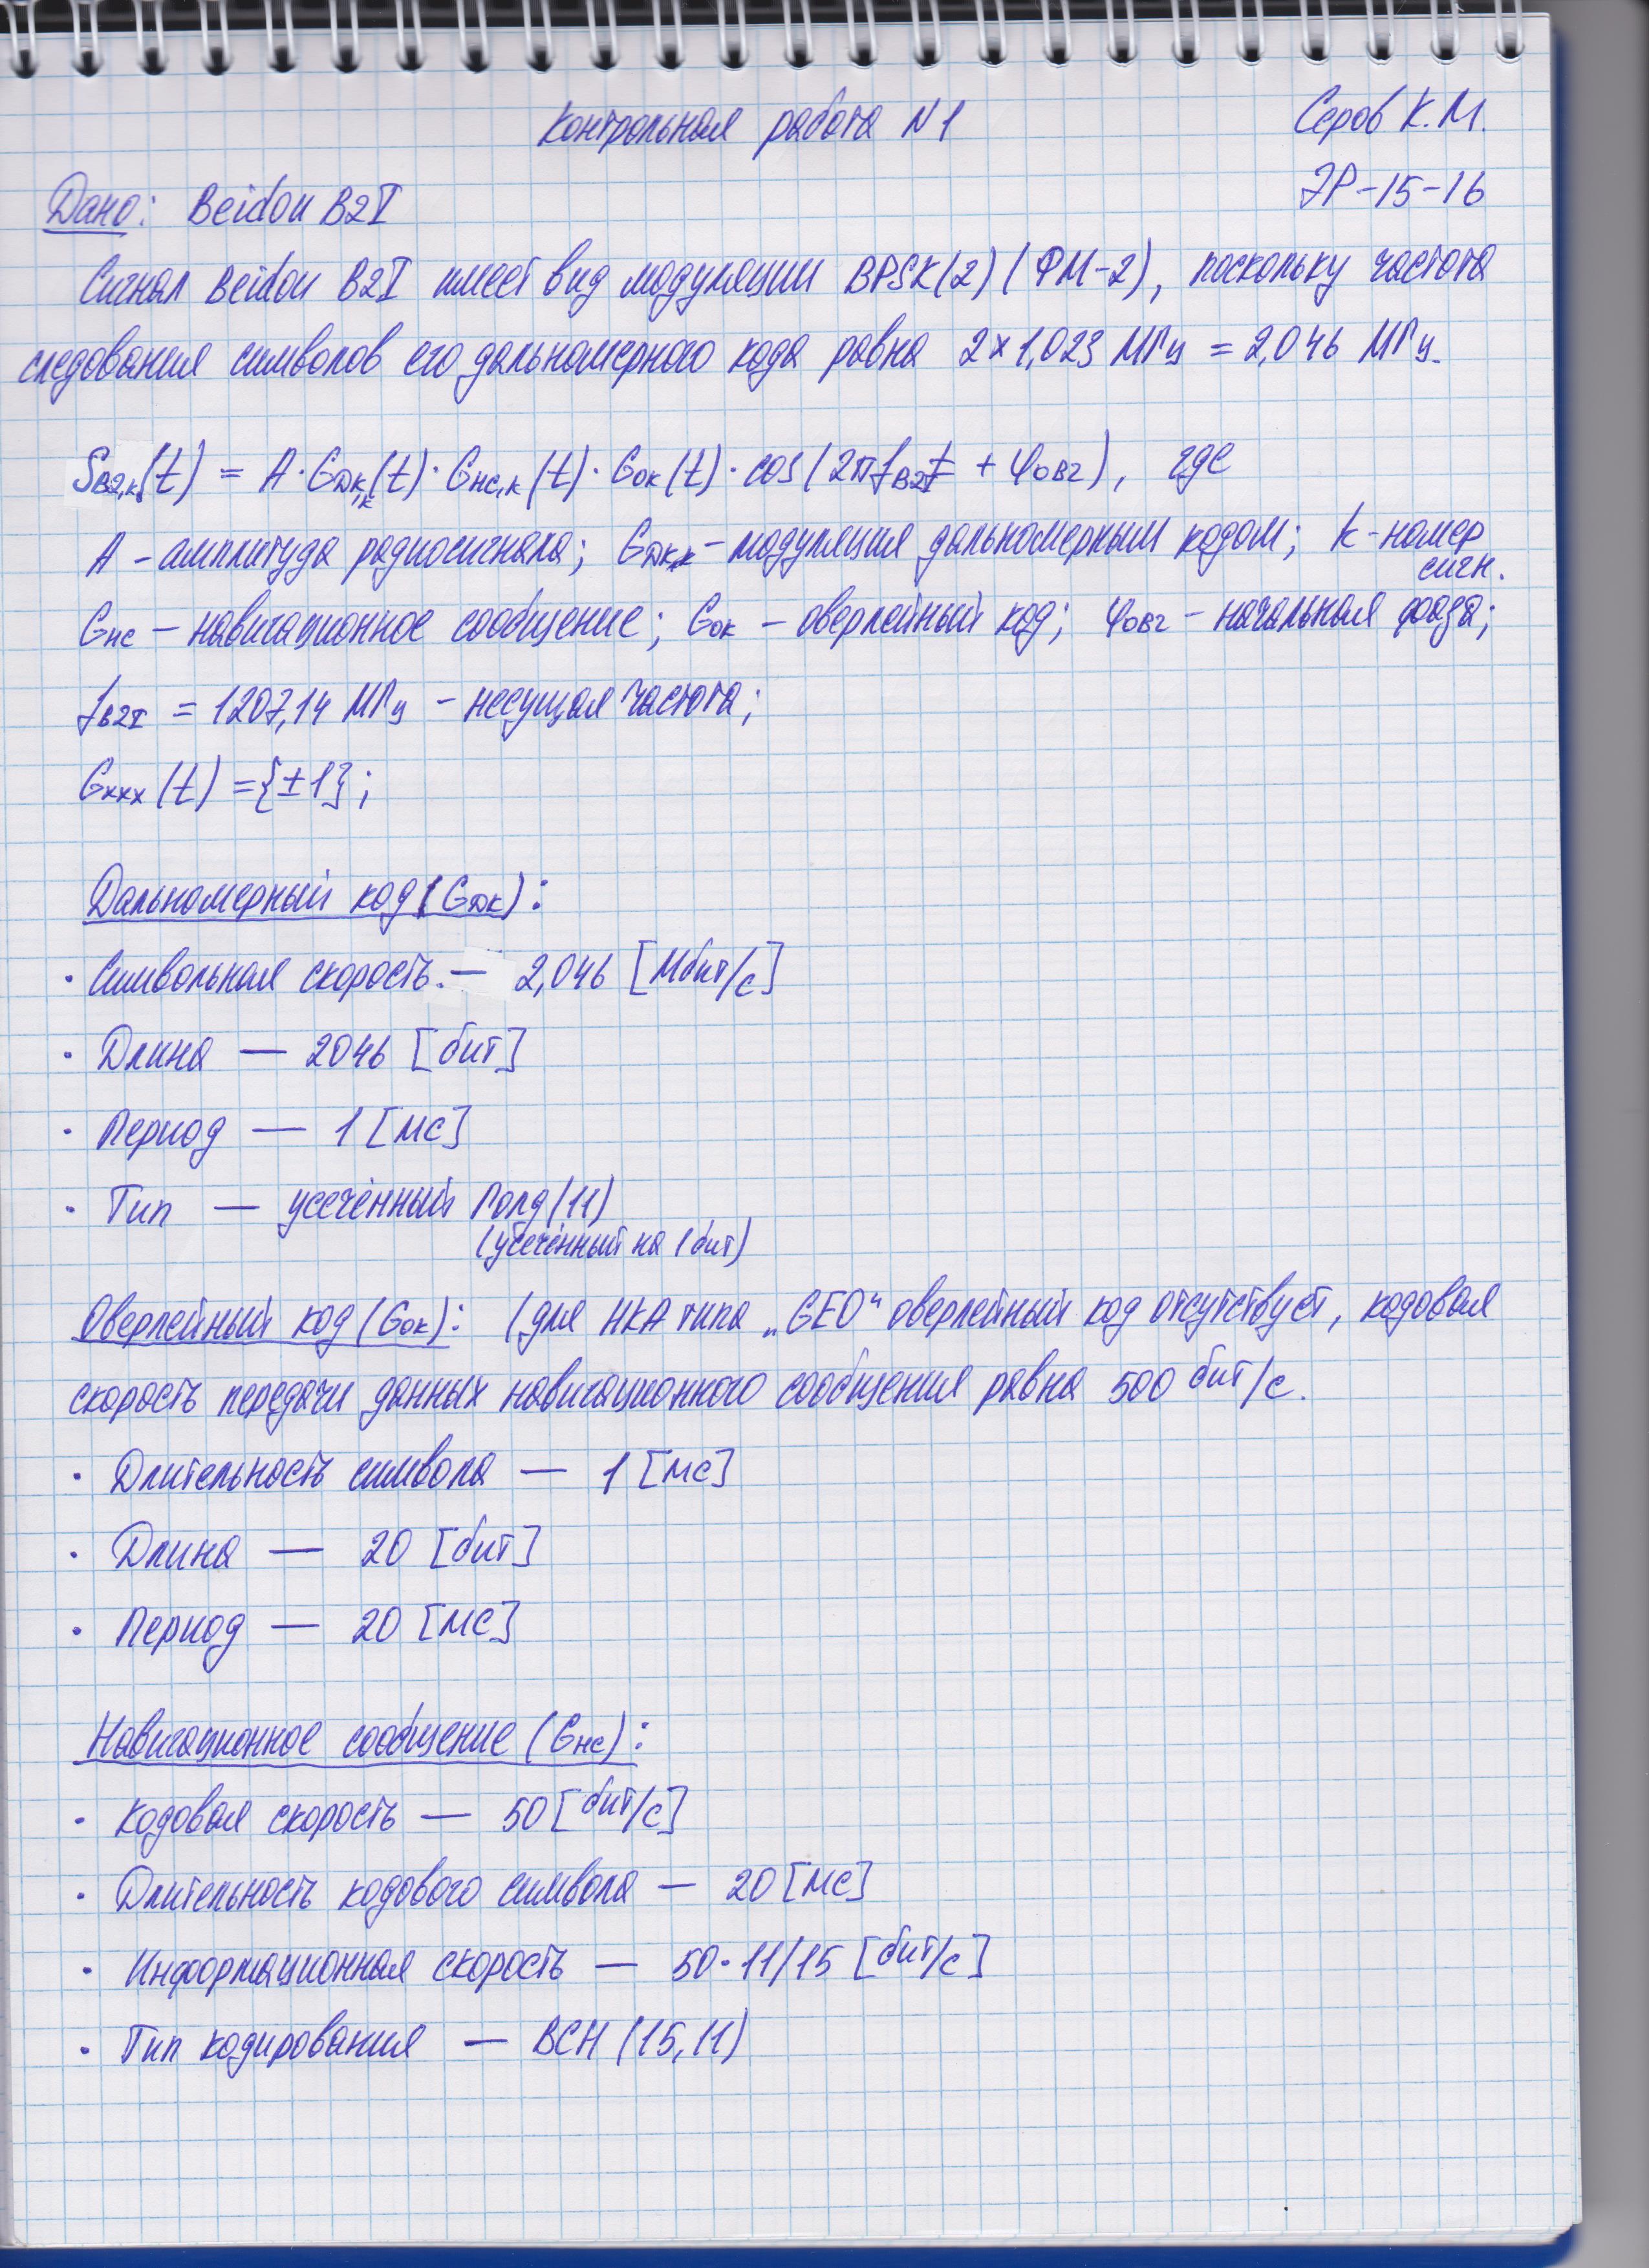 Контрольная работа N1
Серов К.М.
ЭР-15-16
Дано: Beidou B2I
Сигнал Beidou B2I имеет вид модуляции BPSK(2) (ФМ-2), поскольку частота
следования символов его дальномерного кода равна 2×1,023 МГц = 2,046 МГц.
S_B2,k(t) = A·G_дк,k(t)·G_нс,k(t)·G_ок(t)·cos(2πf_B2I t + φ_0B2), где
A – амплитуда радиосигнала; G_дк,k – модуляция дальномерным кодом; k – номер
сигн.
G_нс – навигационное сообщение; G_ок – оверлейный код; φ_0B2 – начальная фаза;
f_B2I = 1207,14 МГц – несущая частота;
G_xxx(t) = {±1};
Дальномерный код (G_дк):
· Символьная скорость. — 2,046 [Мбит/с]
· Длина — 2046 [бит]
· Период — 1 [мс]
· Тип — усечённый Голд (11)
(усечённый на 1 бит)
Оверлейный код (G_ок): (для НКА типа „GEO“ оверлейный код отсутствует, кодовая
скорость передачи данных навигационного сообщения равна 500 бит/с.
· Длительность символа — 1 [мс]
· Длина — 20 [бит]
· Период — 20 [мс]
Навигационное сообщение (G_нс):
· Кодовая скорость — 50 [бит/с]
· Длительность кодового символа — 20 [мс]
· Информационная скорость — 50·11/15 [бит/с]
· Тип кодирования — BCH (15,11)